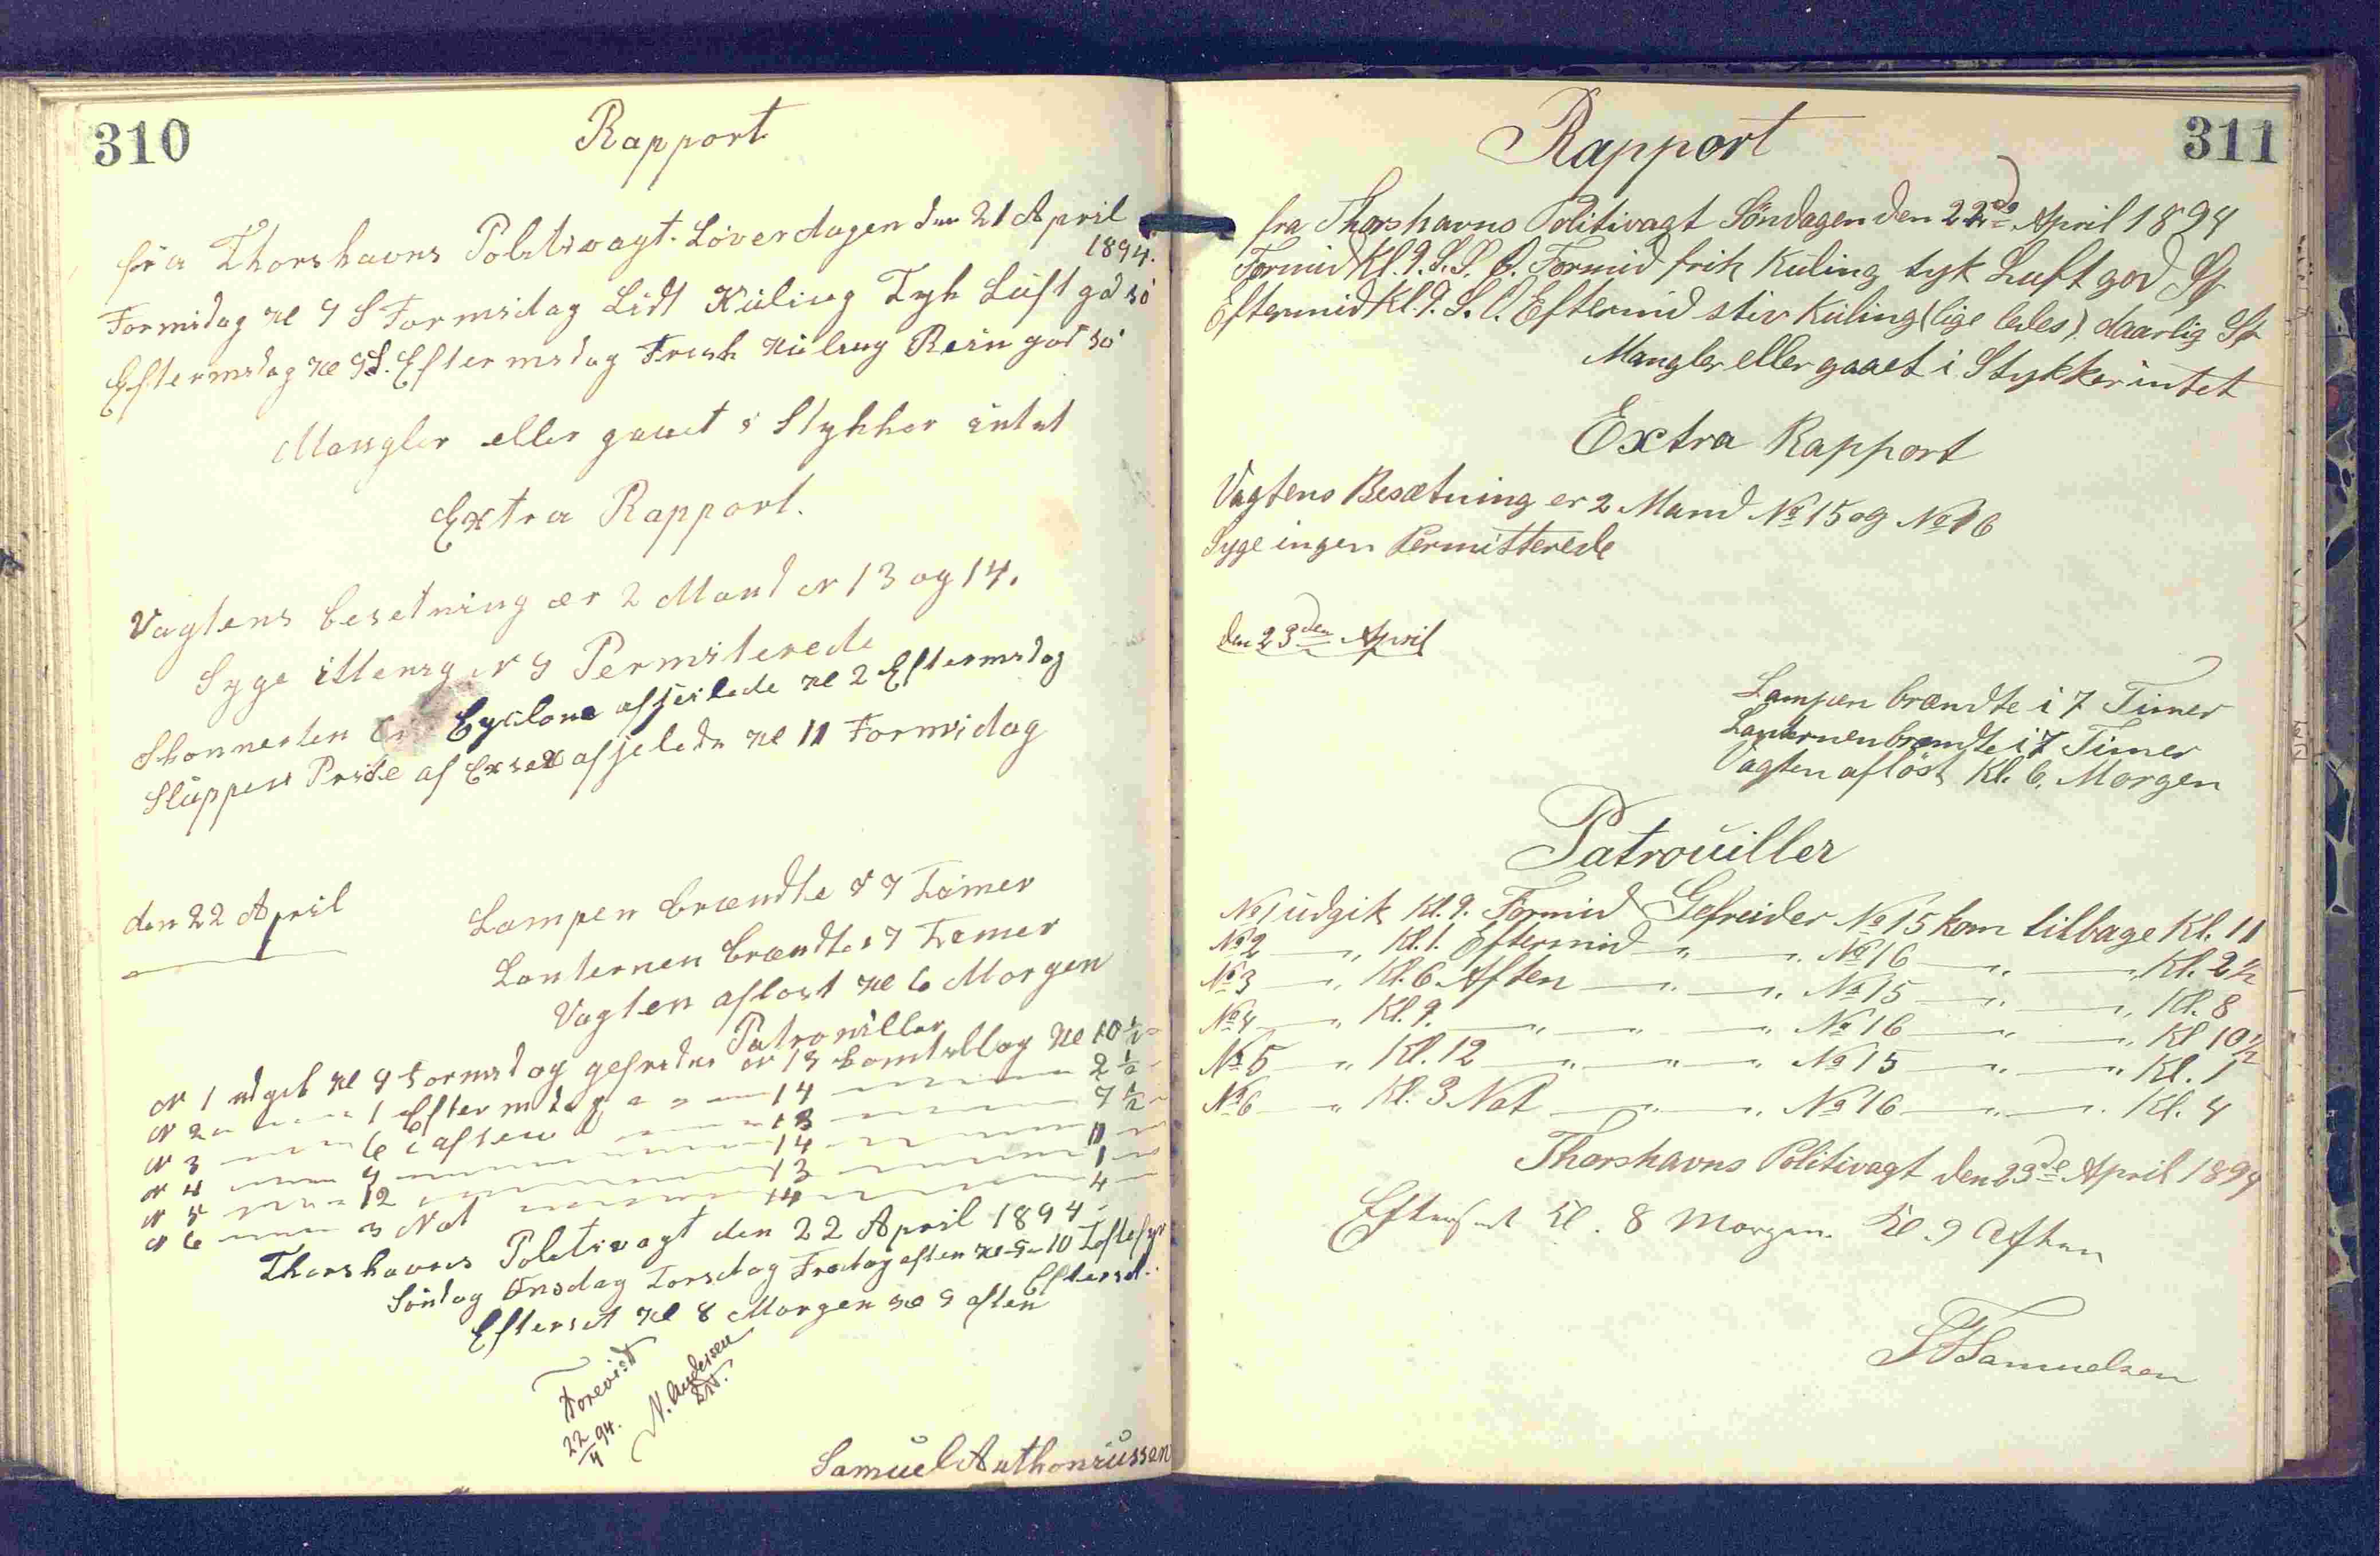 310
Rapport
fra Thorshavns Politivagt. Löverdagen den 21 April
1894.
Formidag Kl 9 S Formidag Lidt Küling Tyk Lüft god sö
Eftermidag Kl 9 S. Eftermidag Fresk Küling Rein god sö
Mangler eller gaaet i Stykker intet
Extra Rapport.
Vagtens besetning er 2 Mand N 13 og 14.
Syge N 9 Permiterede
Skonnerten Cyclone afseilede Kl 2 Eftermidag
Slüppen Pride af Essex afselede Kl 11 Formidag
den 22 April
Lampen brændte i 7 Timer
Lanternen brændte i 7 Timer
Vagten aflöst Kl 6 Morgen
Patrouiller
N 1 udgik Kl 9 Formidag gefreider N 13 komtilbag Kl 10 1/2
N 2 " " 1 Eftermidag " " 14 " 2 1/2
N 3 " " 6 aften " 13 " 7 1/2
N 4 " " 9 " 14 " 11
N 5 " " 12 " 13 " 1
N 6 " " 3 Nat " 14 " 4
Thorshavns Politivagt den 22 April 1894.
Söndag Onsdag Torsdag Fredag aften Kl 9-10 Toftefyr
Efterset.
Efterset Kl 8 Morgen Kl 9 aften
Forevist
22/4 94.
N. Andersen
Samüel Anthoniüssen
311
Rapport
fra Thorshavns Politivagt Söndagen den 22de April 1894
Formid Kl. 9. S. S. O. Formid frisk Küling tyk Luft god Sr
Eftermid Kl. 9. S. O. Eftermid stiv Küling (lige ledes) daarlig Sr
Mangler eller gaaet i Stykker intet
Extra Rapport
Vagtens Besætning er 2 Mand No 15 og No 16
Syge ingen Permitterede
den 23den April
Lampen brændte i 7 Timer
Lanternen brændte i 7 Timer
Vagten aflöst Kl. 6. Morgen
Patrouiller
No 1 udgik Kl. 9. Formid Gefreider No 15 kom tilbage Kl. 11
No 2 — " Kl. 1. Eftermid — " — " No 16 — " — " Kl. 2 1/2
No 3 — " Kl. 6 Aften — " — " No 15 — " — " Kl. 8
No 4 — " Kl. 9. — " — " — " No 16 — " — " Kl 10 1/2
No 5 — " Kl. 12 — " — " — " No 15 — " — " Kl. 1
No 6 — " Kl. 3 Nat — " — " No 16 — " — " Kl. 4
Thorshavns Politivagt den 23de April 1894
Efterset Kl. 8 Morgen. Kl. 9 Aften
Samuelsen